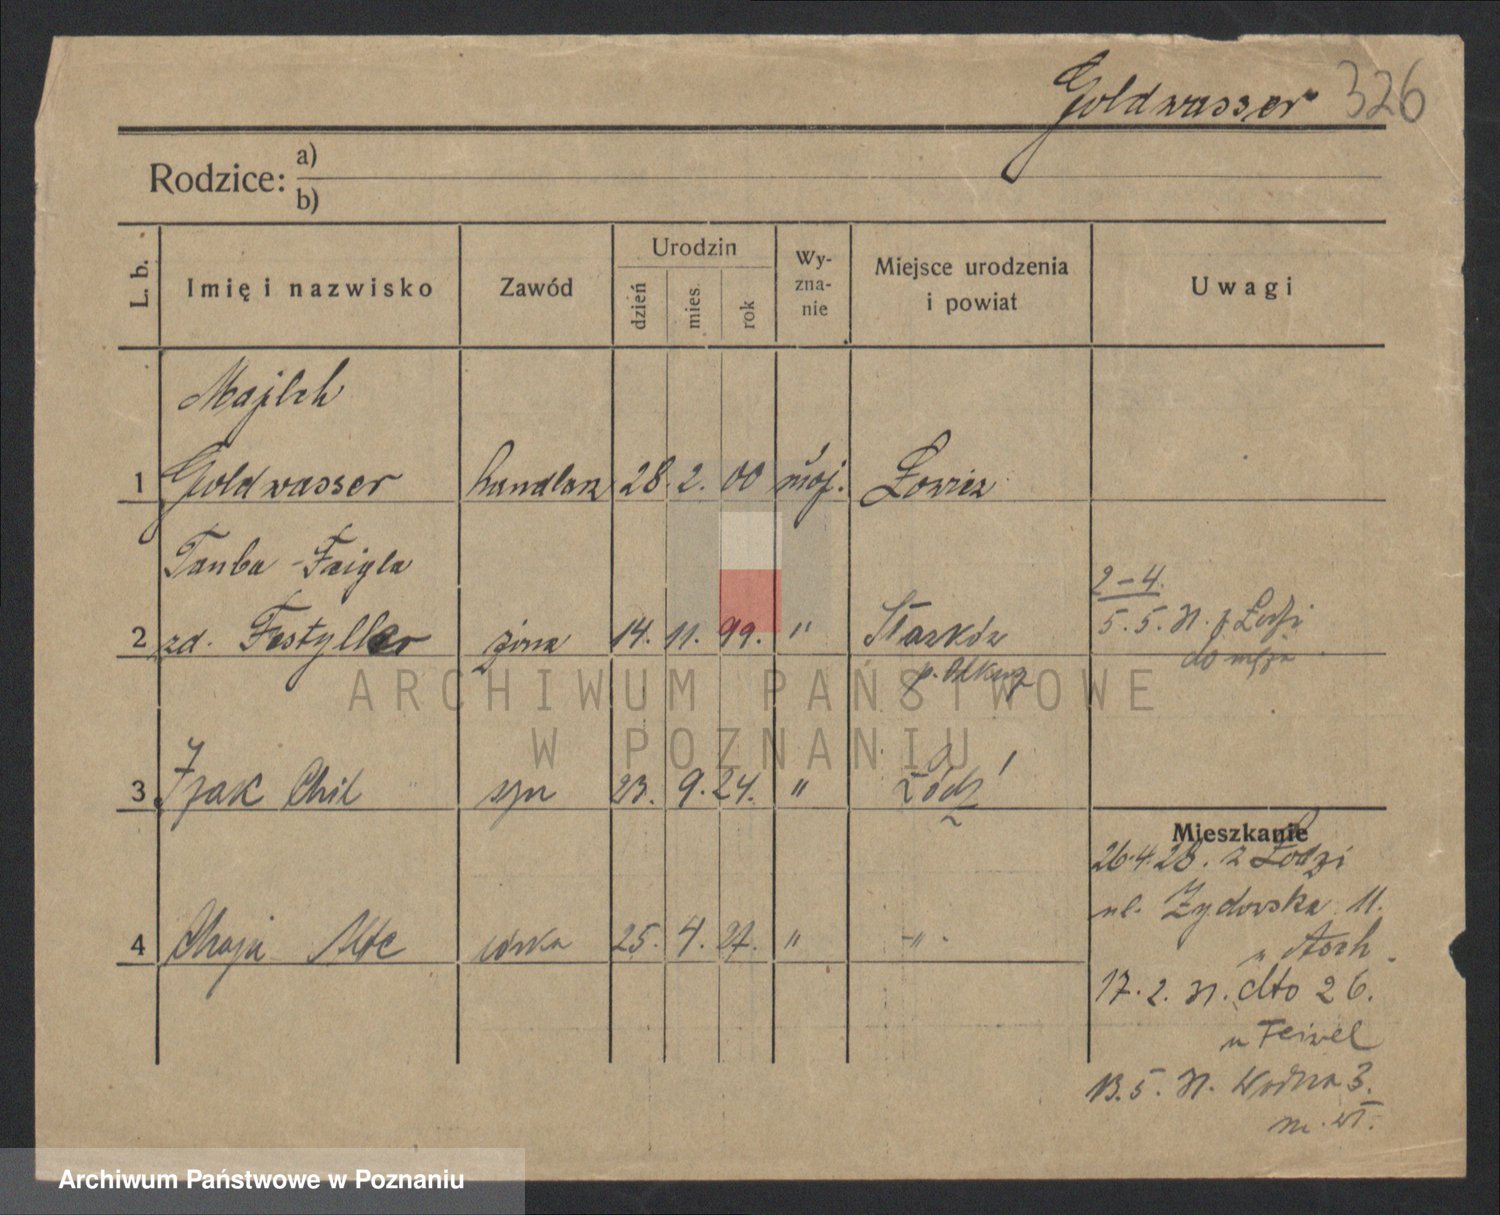 Goldwasser 326
Rodzice: a)
b)
L. b. Imię i nazwisko Zawód Urodzin dzień mies. rok Wy-zna-nie Miejsce urodzenia i powiat Uwagi
Majlch
1 Goldwasser handlarz 28. 2. 00 mojż. Łowicz
Tauba - Faigla 2-4.
2 zd. Festyller żona 14. 11. 99. " 5.5.31. z Łodzi
p. Olkusz do męża
ARCHIWUM PAŃSTWOWE
W POZNANIU
3 Izak Chil syn 23. 9. 24. " Łódź
Mieszkanie
26.4.28. z Łodzi
ul. Żydowska 11.
4 Chaja córka 25. 4. 27. " -"-
u Asch.
17. 2. 31. dto 26.
u Feiwel
13. 5. 31. Wodna 3.
m. wł.
Archiwum Państwowe w Poznaniu